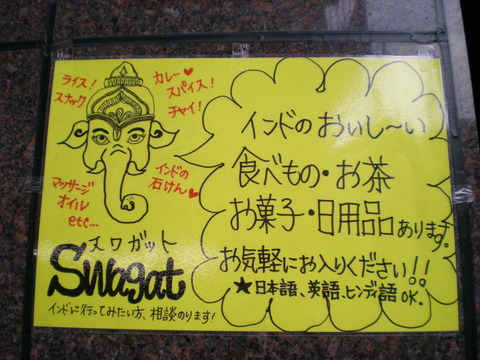 ライス！
スナック
カレー♥
スパイス！
チャイ！
マッサージ
オイル
etc...
インドの
石けん♥
スワガット
Swagat
インドに行ってみたい方、相談のります！
インドのおいし〜い
食べもの・お茶
お菓子・日用品あります。
お気軽にお入りください!!
★日本語、英語、ヒンディ語OK.